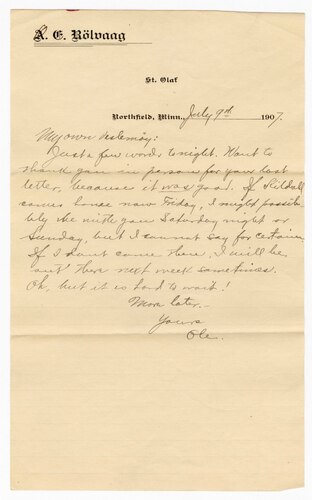 A. E. Rölvaag
St. Olaf
Northfield, Minn., July 9th 1907.
My own
Just a few words tonight. Want to
thank you in person for your last
letter, because it was good. If
comes house now Friday, I might possib-
ly the with you Saturday night or
Sunday, but I cannot say for certain.
If I dont come then, I will be
out there next week sometimes.
Oh, but it is hard to wait!
More later.—
Yours
Ole.